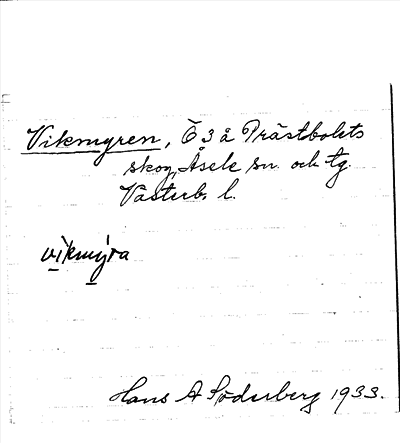 Vikmyren, Ö 3 å Prästbolets
skog, Åsele sn. och tg.
Västerb. l.
vikmyra
Hans A Söderberg 1933.